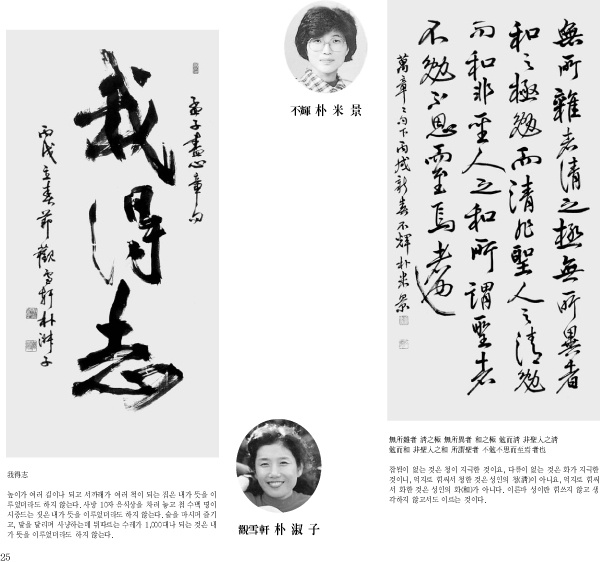 我得志
孟子盡心章句
丙戌立春節 觀雪軒 朴淑子
不輝 朴米景
無所雜者清之極無所異者
和之極勉而清非聖人之清勉
而和非聖人之和所謂聖者
不勉不思而至焉者也
萬章之句下丙戌新春不輝朴米景
觀雪軒 朴淑子
我得志
높이가 여러 길이나 되고 서까래가 여러 척이 되는 집은 내가 뜻을 이
루었더라도 하지 않는다. 사방 10자 음식상을 차려 놓고 첩 수백 명이
시중드는 짓은 내가 뜻을 이루었더라도 하지 않는다. 술을 마시며 즐기
고, 말을 달리며 사냥하는데 뒤따르는 수레가 1,000대나 되는 것은 내
가 뜻을 이루었더라도 하지 않는다.
無所雜者 淸之極 無所異者 和之極 勉而淸 非聖人之淸
勉而和 非聖人之和 所謂聖者 不勉不思而至焉者也
잡됨이 없는 것은 청이 지극한 것이요, 다름이 없는 것은 화가 지극한
것이니, 억지로 힘써서 청한 것은 성인의 청(淸)이 아니요, 억지로 힘써
서 화한 것은 성인의 화(和)가 아니다. 이른바 성이란 힘쓰지 않고 생
각하지 않고서도 이르는 것이다.
25